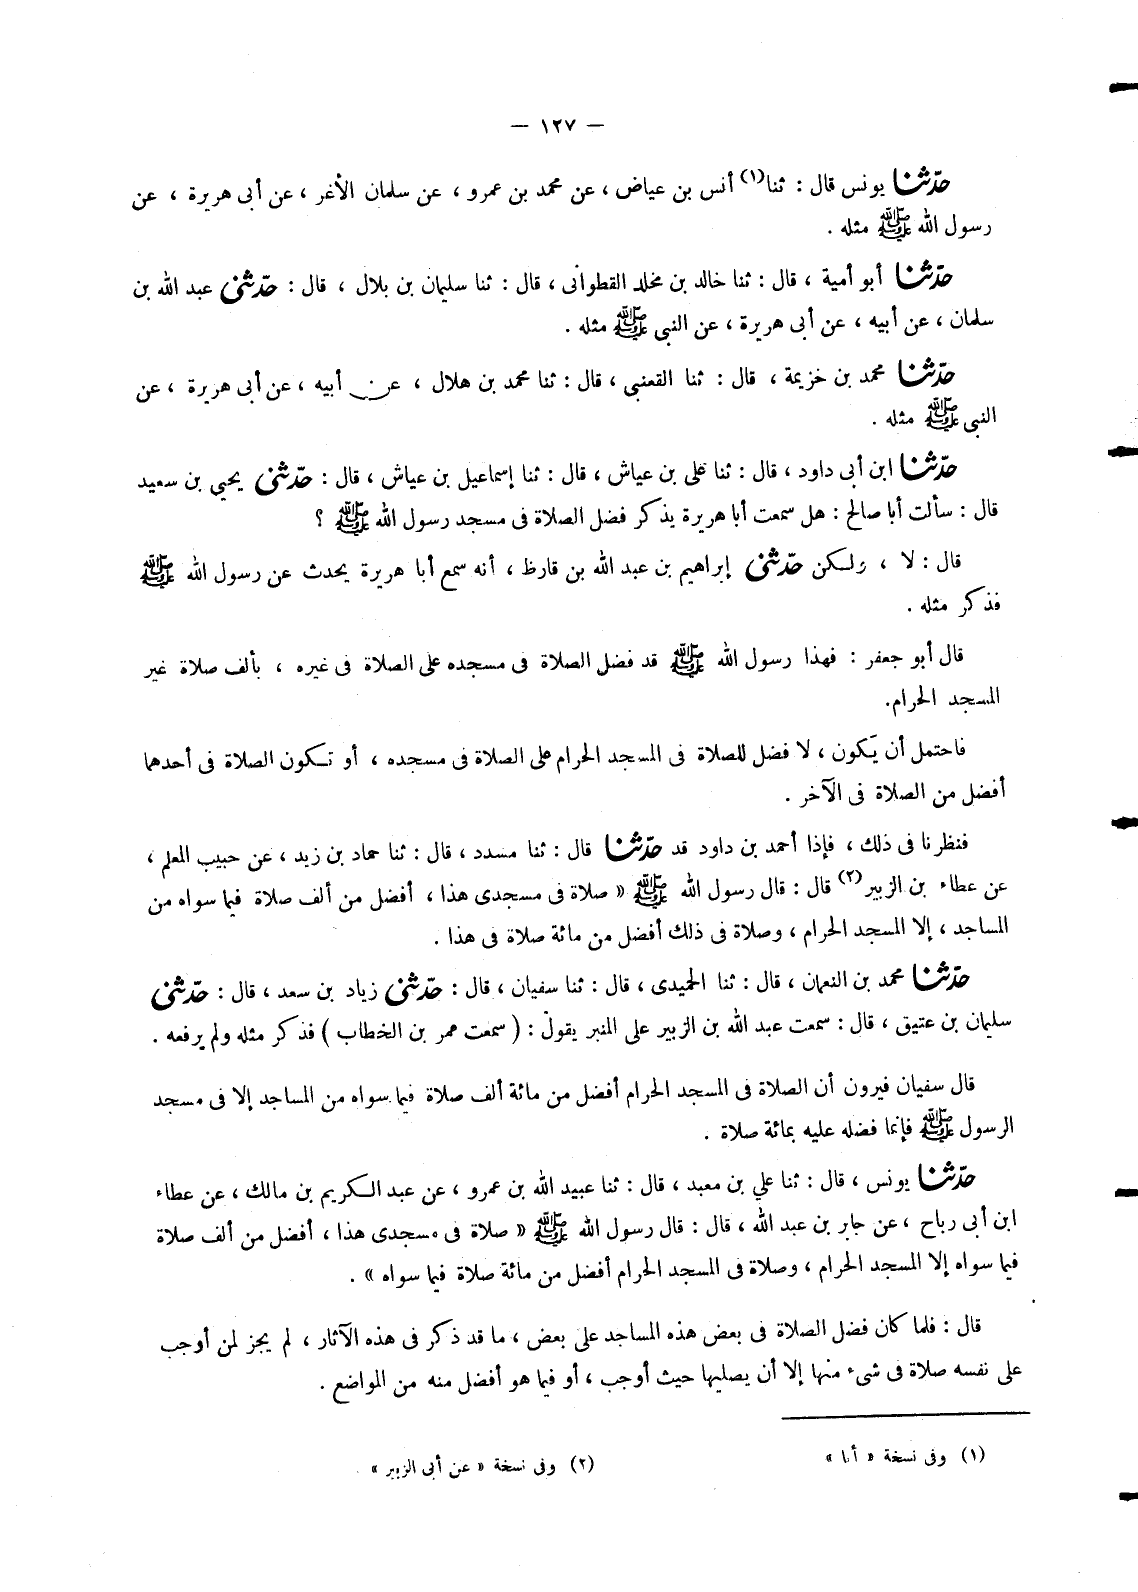 — ١٢٧ —
حدّثنا يونس قال : ثنا(١) أنس بن عياض ، عن محمد بن عمرو ، عن سلمان الأغر ، عن أبى هريرة ، عن
رسول الله ﷺ مثله .
حدّثنا أبو أمية ، قال : ثنا خالد بن مخلد القطوانى ، قال : ثنا سليمان بن بلال ، قال : حدّثنى عبد الله بن
سلمان ، عن أبيه ، عن أبى هريرة ، عن النبى ﷺ مثله .
حدّثنا محمد بن خزيمة ، قال : ثنا القعنبى ، قال : ثنا محمد بن هلال ، عن أبيه ، عن أبى هريرة ، عن
النبى ﷺ مثله .
حدّثنا ابن أبى داود ، قال : ثنا على بن عياش ، قال : ثنا إسماعيل بن عياش ، قال : حدّثنى يحيي بن سعيد
قال : سألت أبا صالح : هل سمعت أبا هريرة يذكر فضل الصلاة فى مسجد رسول الله ﷺ ؟
قال : لا ، ولكن حدّثنى إبراهيم بن عبد الله بن قارظ ، أنه سمع أبا هريرة يحدث عن رسول الله ﷺ
فذكر مثله .
قال أبو جعفر : فهذا رسول الله ﷺ قد فضل الصلاة فى مسجده على الصلاة فى غيره ، بألف صلاة غير
المسجد الحرام.
فاحتمل أن يكون ، لا فضل للصلاة فى المسجد الحرام على الصلاة فى مسجده ، أو تكون الصلاة فى أحدهما
أفضل من الصلاة فى الآخر .
فنظرنا فى ذلك ، فإذا أحمد بن داود قد حدّثنا قال : ثنا مسدد ، قال : ثنا حماد بن زيد ، عن حبيب المعلم ،
عن عطاء بن الزبير(٢) قال : قال رسول الله ﷺ « صلاة فى مسجدى هذا ، أفضل من ألف صلاة فيما سواه من
المساجد ، إلا المسجد الحرام ، وصلاة فى ذلك أفضل من مائة صلاة فى هذا .
حدّثنا محمد بن النعمان ، قال : ثنا الحميدى ، قال : ثنا سفيان ، قال : حدّثنى زياد بن سعد ، قال : حدّثنى
سليمان بن عتيق ، قال : سمعت عبد الله بن الزبير على المنبر يقول : ( سمعت عمر بن الخطاب ) فذكر مثله ولم يرفعه .
قال سفيان فيرون أن الصلاة فى المسجد الحرام أفضل من مائة ألف صلاة فيما سواه من المساجد إلا فى مسجد
الرسول ﷺ فإنما فضله عليه بمائة صلاة .
حدّثنا يونس ، قال : ثنا علي بن معبد ، قال : ثنا عبيد الله بن عمرو ، عن عبد الكريم بن مالك ، عن عطاء
ابن أبى رباح ، عن جابر بن عبد الله ، قال : قال رسول الله ﷺ « صلاة فى مسجدى هذا ، أفضل من ألف صلاة
فيما سواه إلا المسجد الحرام ، وصلاة فى المسجد الحرام أفضل من مائة صلاة فيما سواه » .
قال : فلما كان فضل الصلاة فى بعض هذه المساجد على بعض ، ما قد ذكر فى هذه الآثار ، لم يجز لمن أوجب
على نفسه صلاة فى شىء منها إلا أن يصليها حيث أوجب ، أو فيما هو أفضل منه من المواضع .
(١) وفى نسخة « أنا » (٢) وفى نسخة « عن أبى الزبير » .